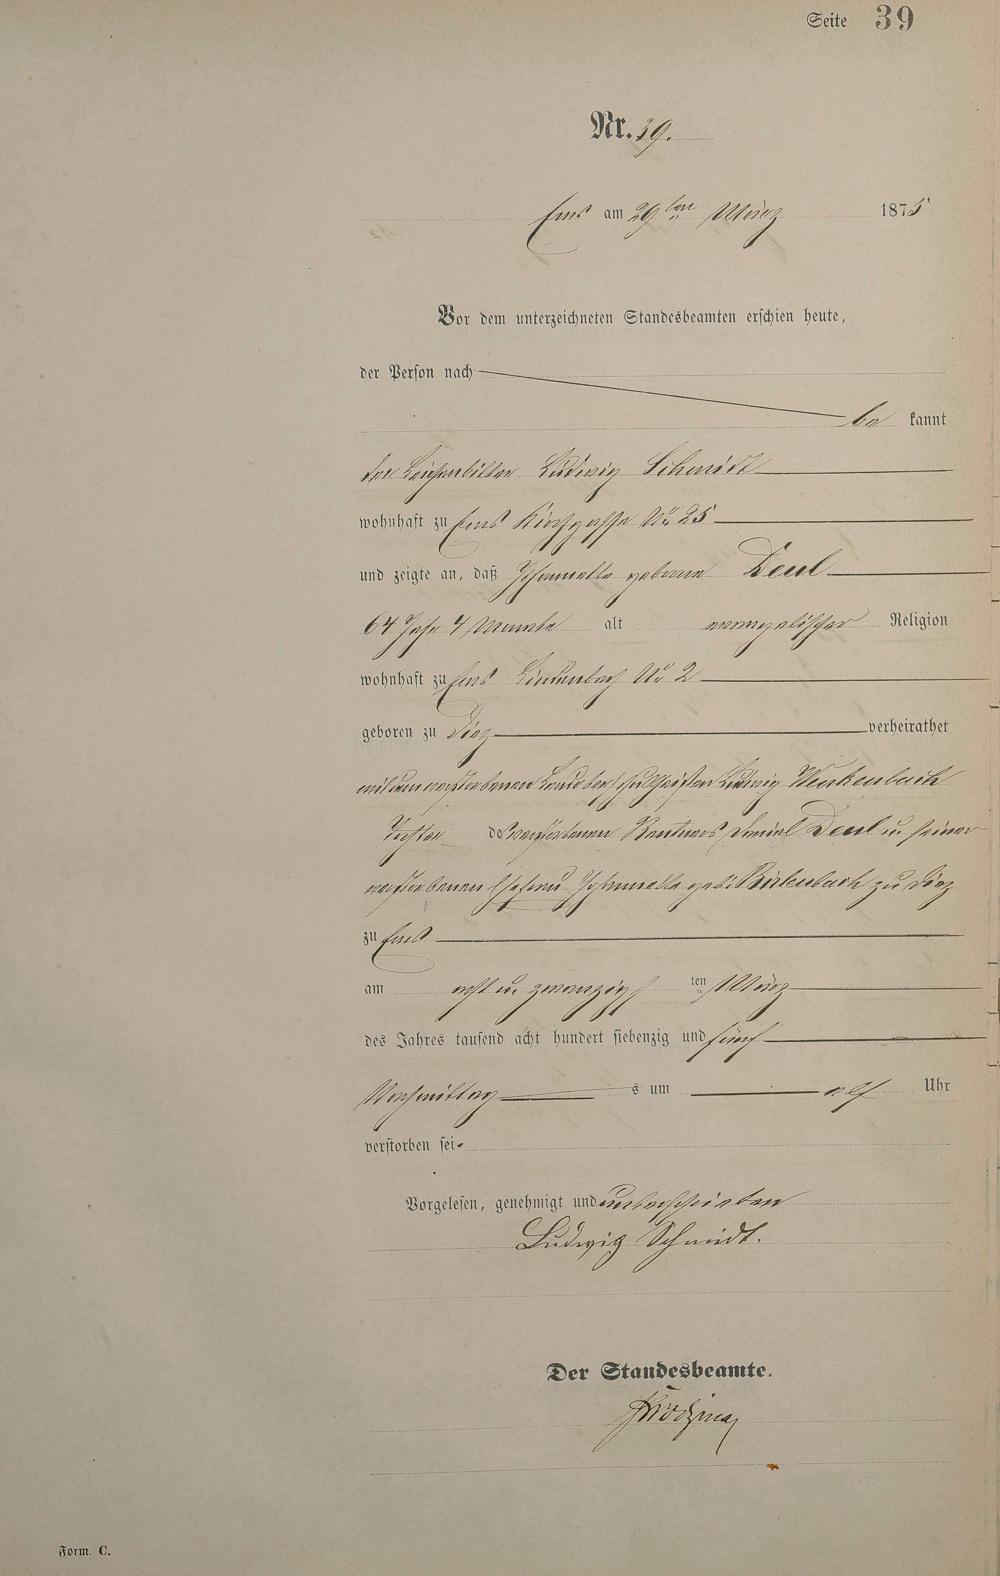 Seite 39
Nr. 39.
Ems am 29ten März 1875
Vor dem unterzeichneten Standesbeamten erschien heute,
der Person nach
be kannt
der Leichenbitter Ludwig Schmidt
wohnhaft zu Ems Kirchgasse No 25
und zeigte an, daß Johannette geborne Deul
64 Jahr 4 Monate alt evangelischer Religion
wohnhaft zu Ems Lindenbach No 2
geboren zu Diez verheirathet
mit dem verstorbenen Ludwig Wenkenbach
Tochter des verstorbenen Rentners Daniel Deul u. seiner
verstorbenen Ehefrau Johannette geb. Birlenbach zu Diez
zu Ems
am acht u. zwanzigsten März
des Jahres tausend acht hundert siebenzig und fünf
Vormittag s um elf Uhr
verstorben sei.
Vorgelesen, genehmigt und unterschrieben
Ludwig Schmidt.
Der Standesbeamte.
Form. C.